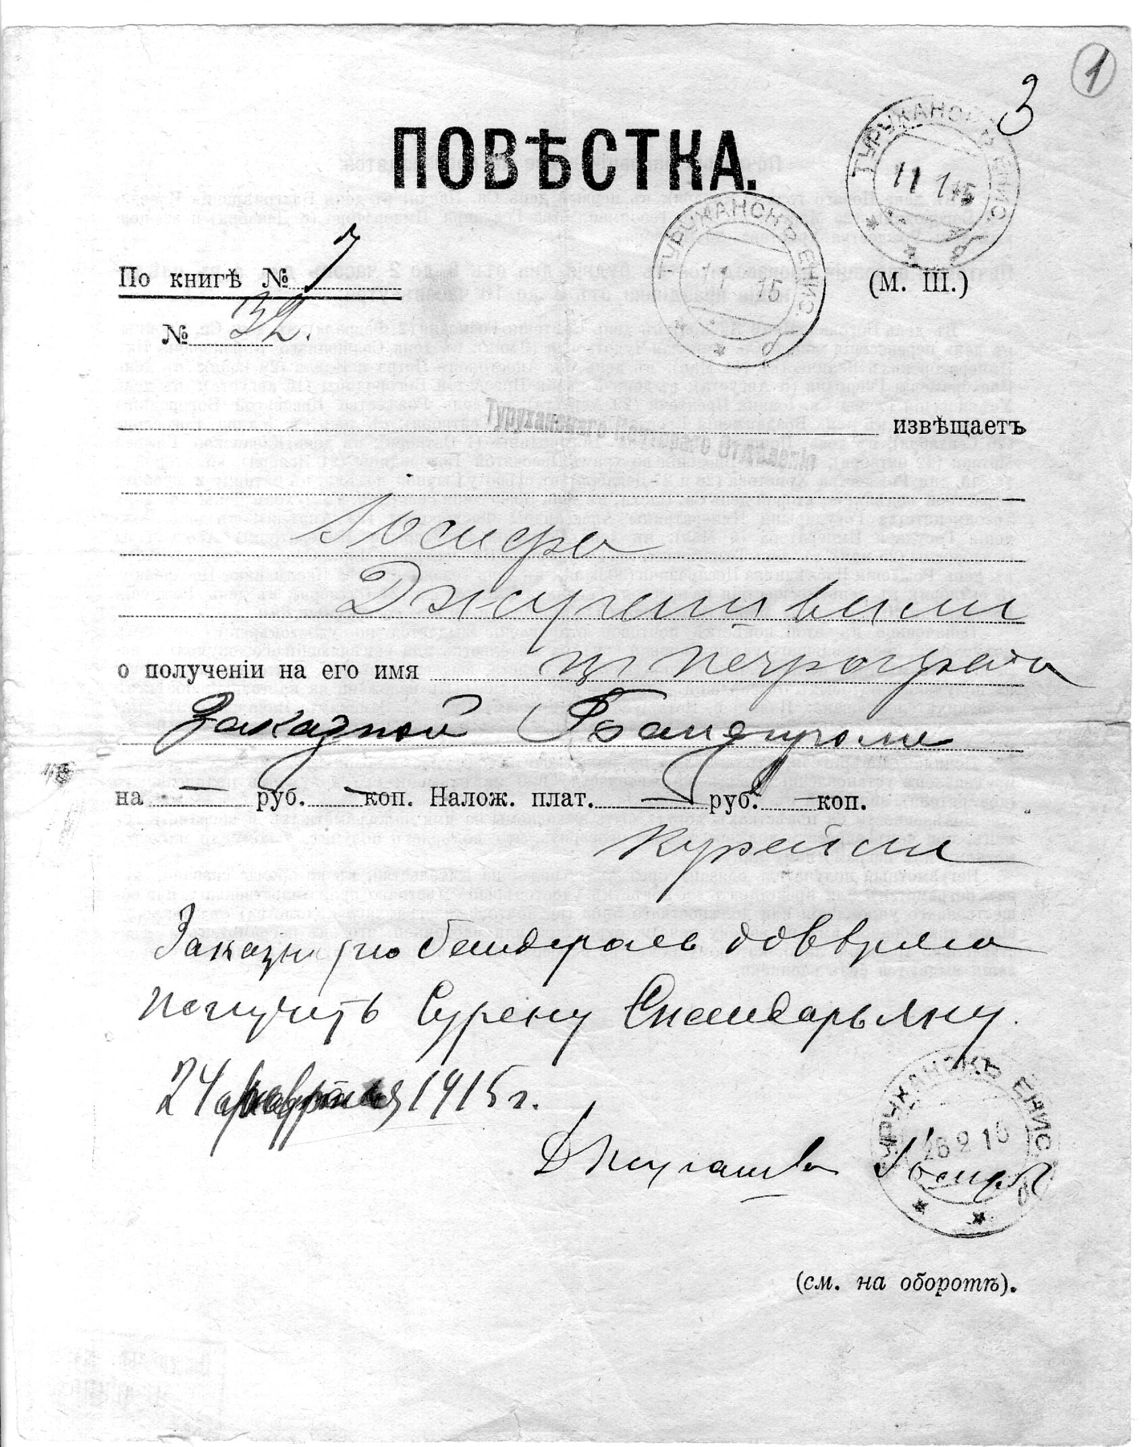 1
3
ПОВѢСТКА.
ТУРУХАНСКЪ ЕНИС.
11 1 15
б
ТУРУХАНСКЪ ЕНИС.
11 1 15
б
По книгѣ № 7
(М. Ш.)
№ 32.
Туруханского Почтоваго Отдѣленія
извѣщаетъ
Іосифа
Джугашвили
о полученіи на его имя изъ Петрограда
Заказной Бандероли
на — руб. — коп. Налож. плат. — руб. — коп.
Курейка
Заказную бандероль довѣряю
получить Сурену Спандарьяну.
24 1915 г.
Джугашв Іосифъ
ТУРУХАНСКЪ ЕНИС.
26 2 15
б
(см. на оборотѣ).